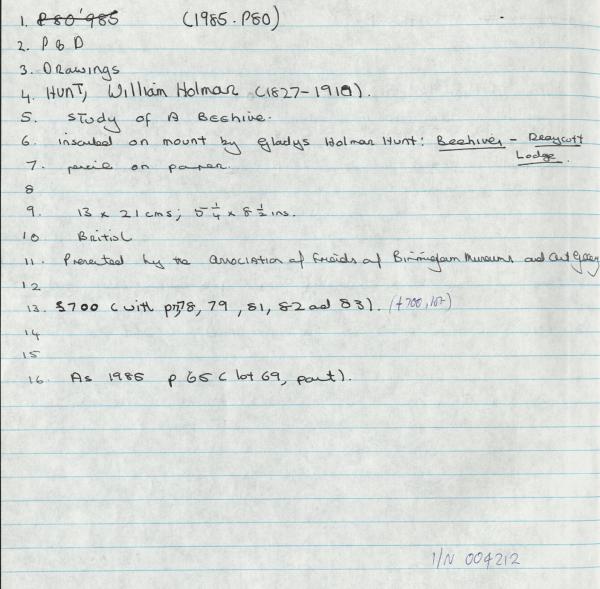 1. P 80'985 (1985.P80)
2. P & D
3. Drawings
4. HUNT, William Holman (1827-1910).
5. Study of A Beehive.
6. inscribed on mount by Gladys Holman Hunt: Beehives - Draycott Lodge.
7. pencil on paper.
8
9. 13 x 21 cms; 5 1/4 x 8 1/2 ins.
10 British
11. Presented by the Association of Friends of Birmingham Museums and Art Gallery
12
13. £700 (with P78, 79, 81, 82 and 83). (£700, lot)
14
15
16. As 1985 P 65 (lot 69, part).
I/N 004212